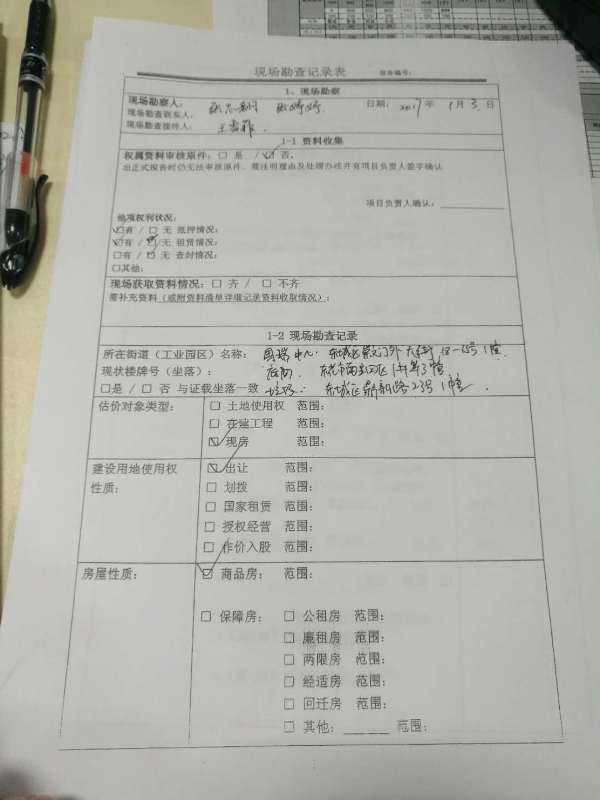 现场勘查记录表 报告编号:
1、现场勘察
现场勘察人: 日期: 2017 年 1 月 3 日
现场勘查联系人:
现场勘查接待人:
1-1 资料收集
权属资料审核原件: □ 是 / ☑ 否,
出正式报告时仍无法审核原件,需注明理由及处理办经并有项目负责人签字确认
项目负责人确认:
他项权利状况:
☑有 / □ 无 抵押情况:
☑有 / ☑ 无 租赁情况:
□有 / □ 无 查封情况:
□其他:
现场获取资料情况: □ 齐 / □ 不齐
需补充资料(或附资料清单详细记录资料收取情况):
1-2 现场勘查记录
所在街道(工业园区)名称: 国瑞中心: 东城区崇文门外大街 18- 1幢.
现状楼牌号(坐落):
□是 / □ 否 与证载坐落一致 东城区 23号 1幢
估价对象类型: □ 土地使用权 范围:
□ 在建工程 范围:
☑ 现房 范围:
建设用地使用权 ☑ 出让 范围:
性质: □ 划拨 范围:
□ 国家租赁 范围:
□ 授权经营 范围:
□ 作价入股 范围:
房屋性质: ☑ 商品房: 范围:
□ 保障房: □ 公租房 范围:
□ 廉租房 范围:
□ 两限房 范围:
□ 经适房 范围:
□ 回迁房 范围:
□ 其他:______ 范围: